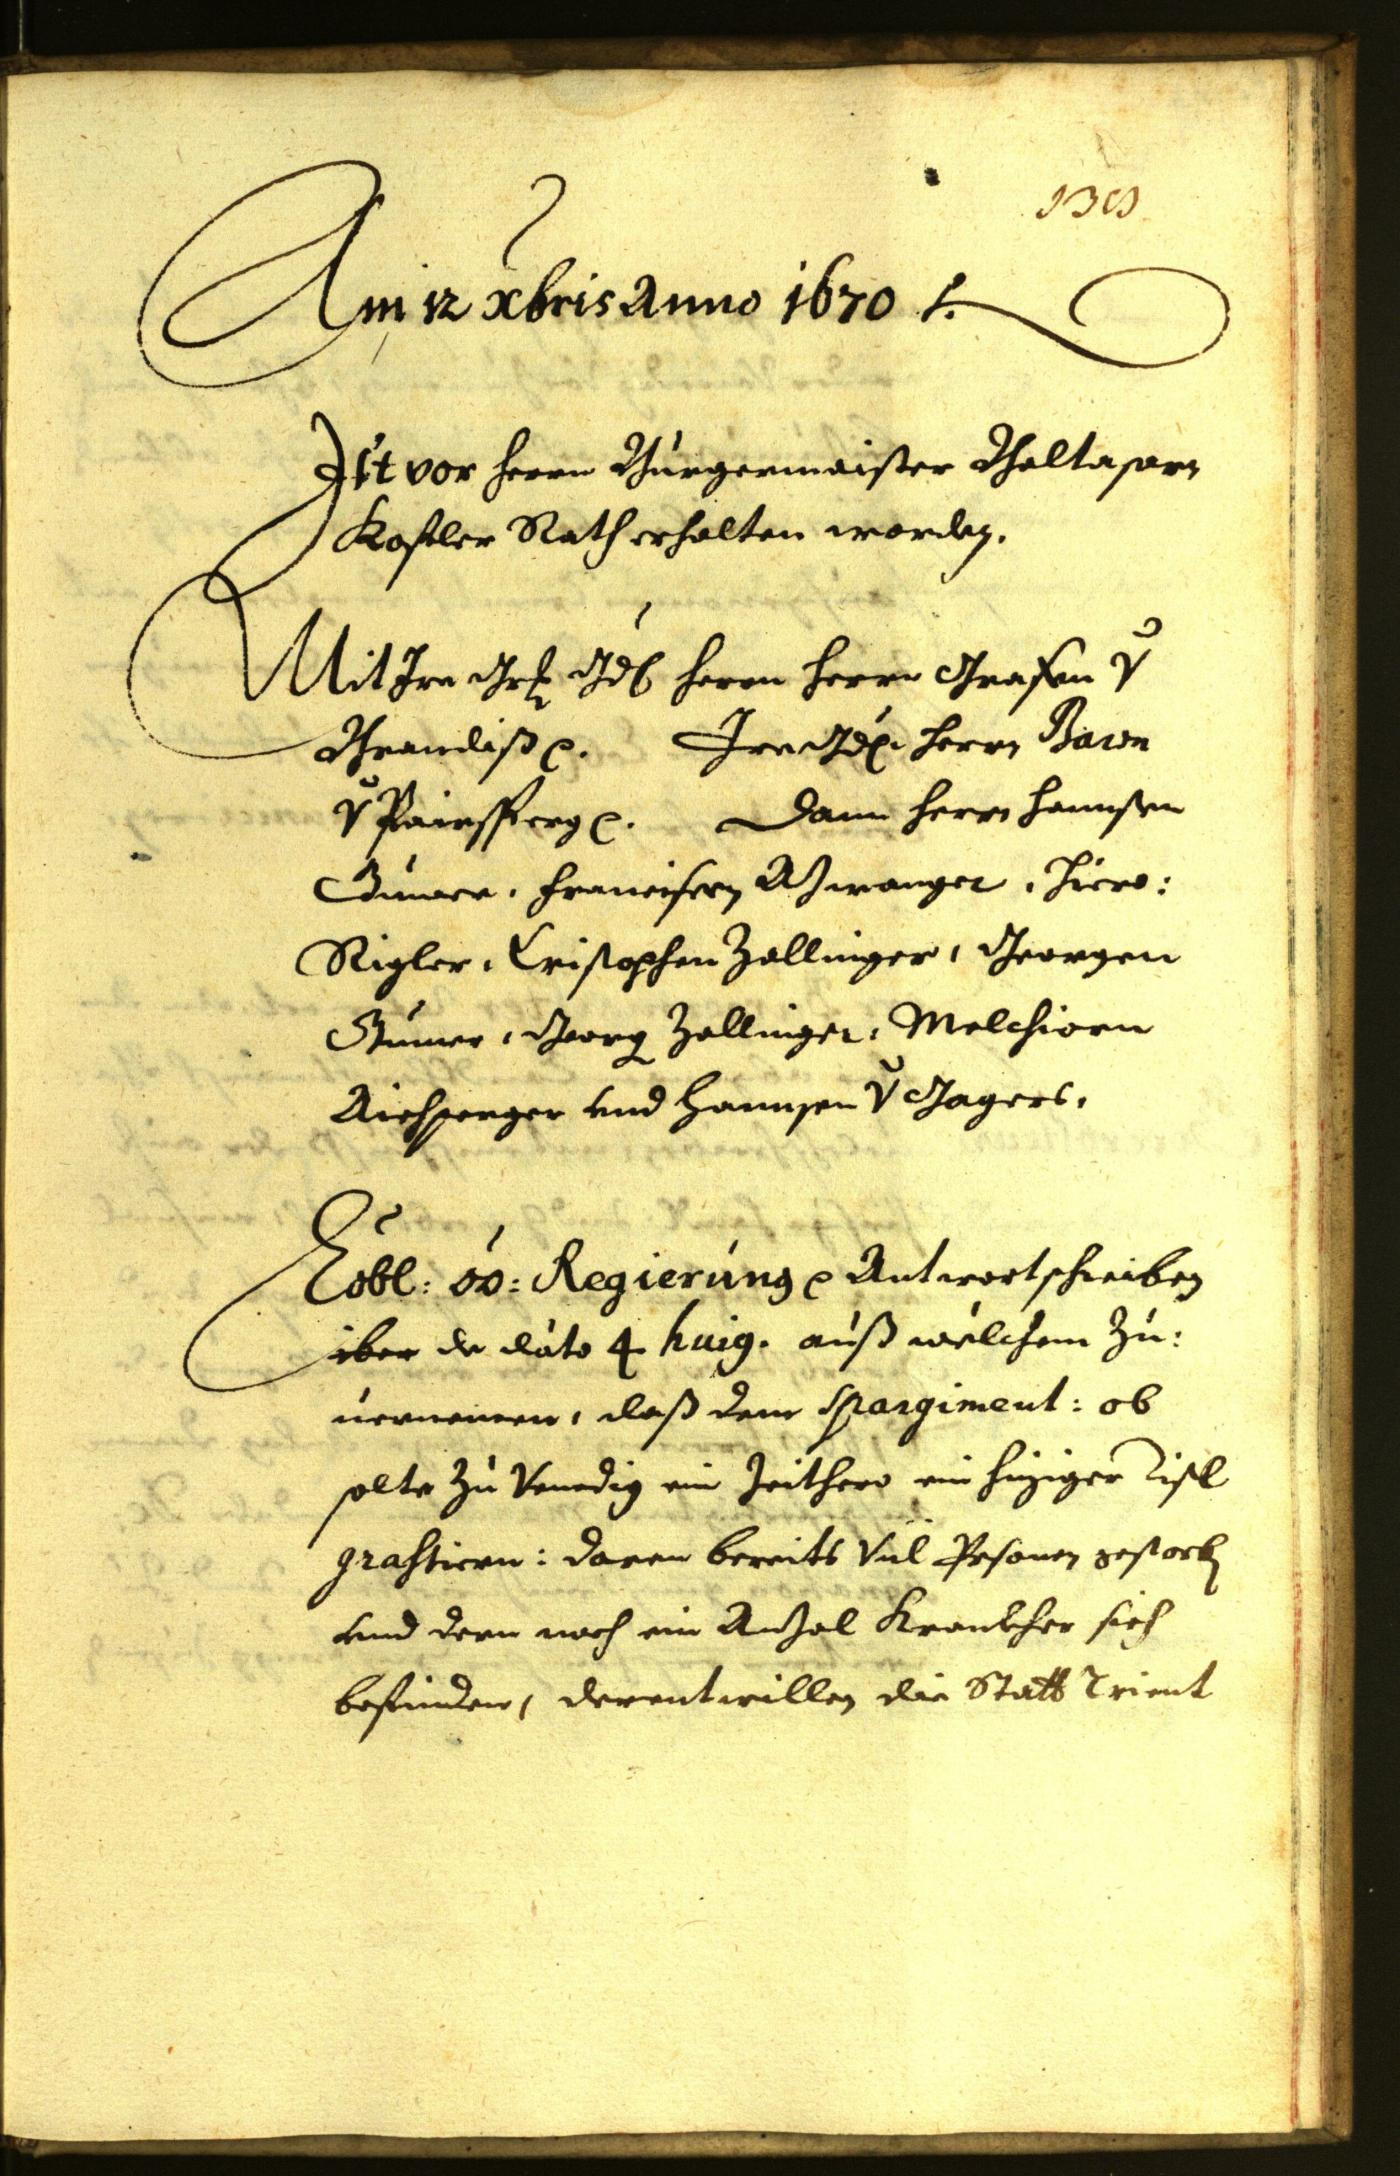 139
Am 12 Xbris Anno 1670 ./.
Ist vor herrn Burgermaister Balthasarn
Kostler Rath erhalten worden.
Mit Irn Grf. Gd. herrn herrn Grafen v
Brandiß etc. Irn Gd. herrn Baron
v Pairsperg etc. Dann herrn Hannsen
Gumer, Francisen Azwanger, Hiero:
Rigler, Cristophen Zallinger, Georgen
Gumer, Georg Zallinger, Melchiorn
Aichperger und Hannsen v Jagers.
Löbl: oö: Regierung etc Antwortschreiben
iber de dato 4 huig. auß welchem zu:
vernemen, daß dem Spargiment: ob
solte zu Venedig ein Zeithero ein hiziger
grassiern: daran bereits vil Persohnen gestorben
und dern noch ein Anzal Krankher sich
befinden, derentwillen die Statt Trient